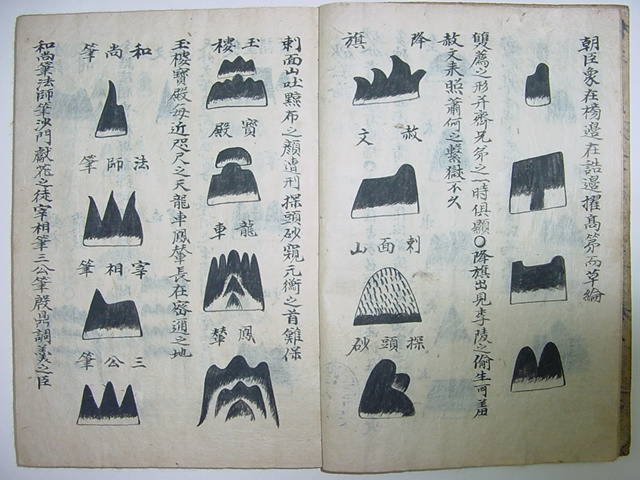 朝臣象在楊邊在誥邊擢髙第丙草綸
雙薦之形并齊兄弟之一時俱顯〇降旗出見李陵之偷生可羞
赦文来照蕭何之繫獄不久
降旗
赦文
刺面山
探頭砂
刺面山吐黥布之顔遭刑探頭砂窺元衡之首難保
玉樓
寳殿
龍車
鳳輦
玉樓寳殿毎近咫尺之天龍車鳳輦長在密邇之地
和尚筆
法師筆
宰相筆
三公筆
和尚筆法師筆沙門獻花之徒宰相筆三公筆殷鼎調羹之臣